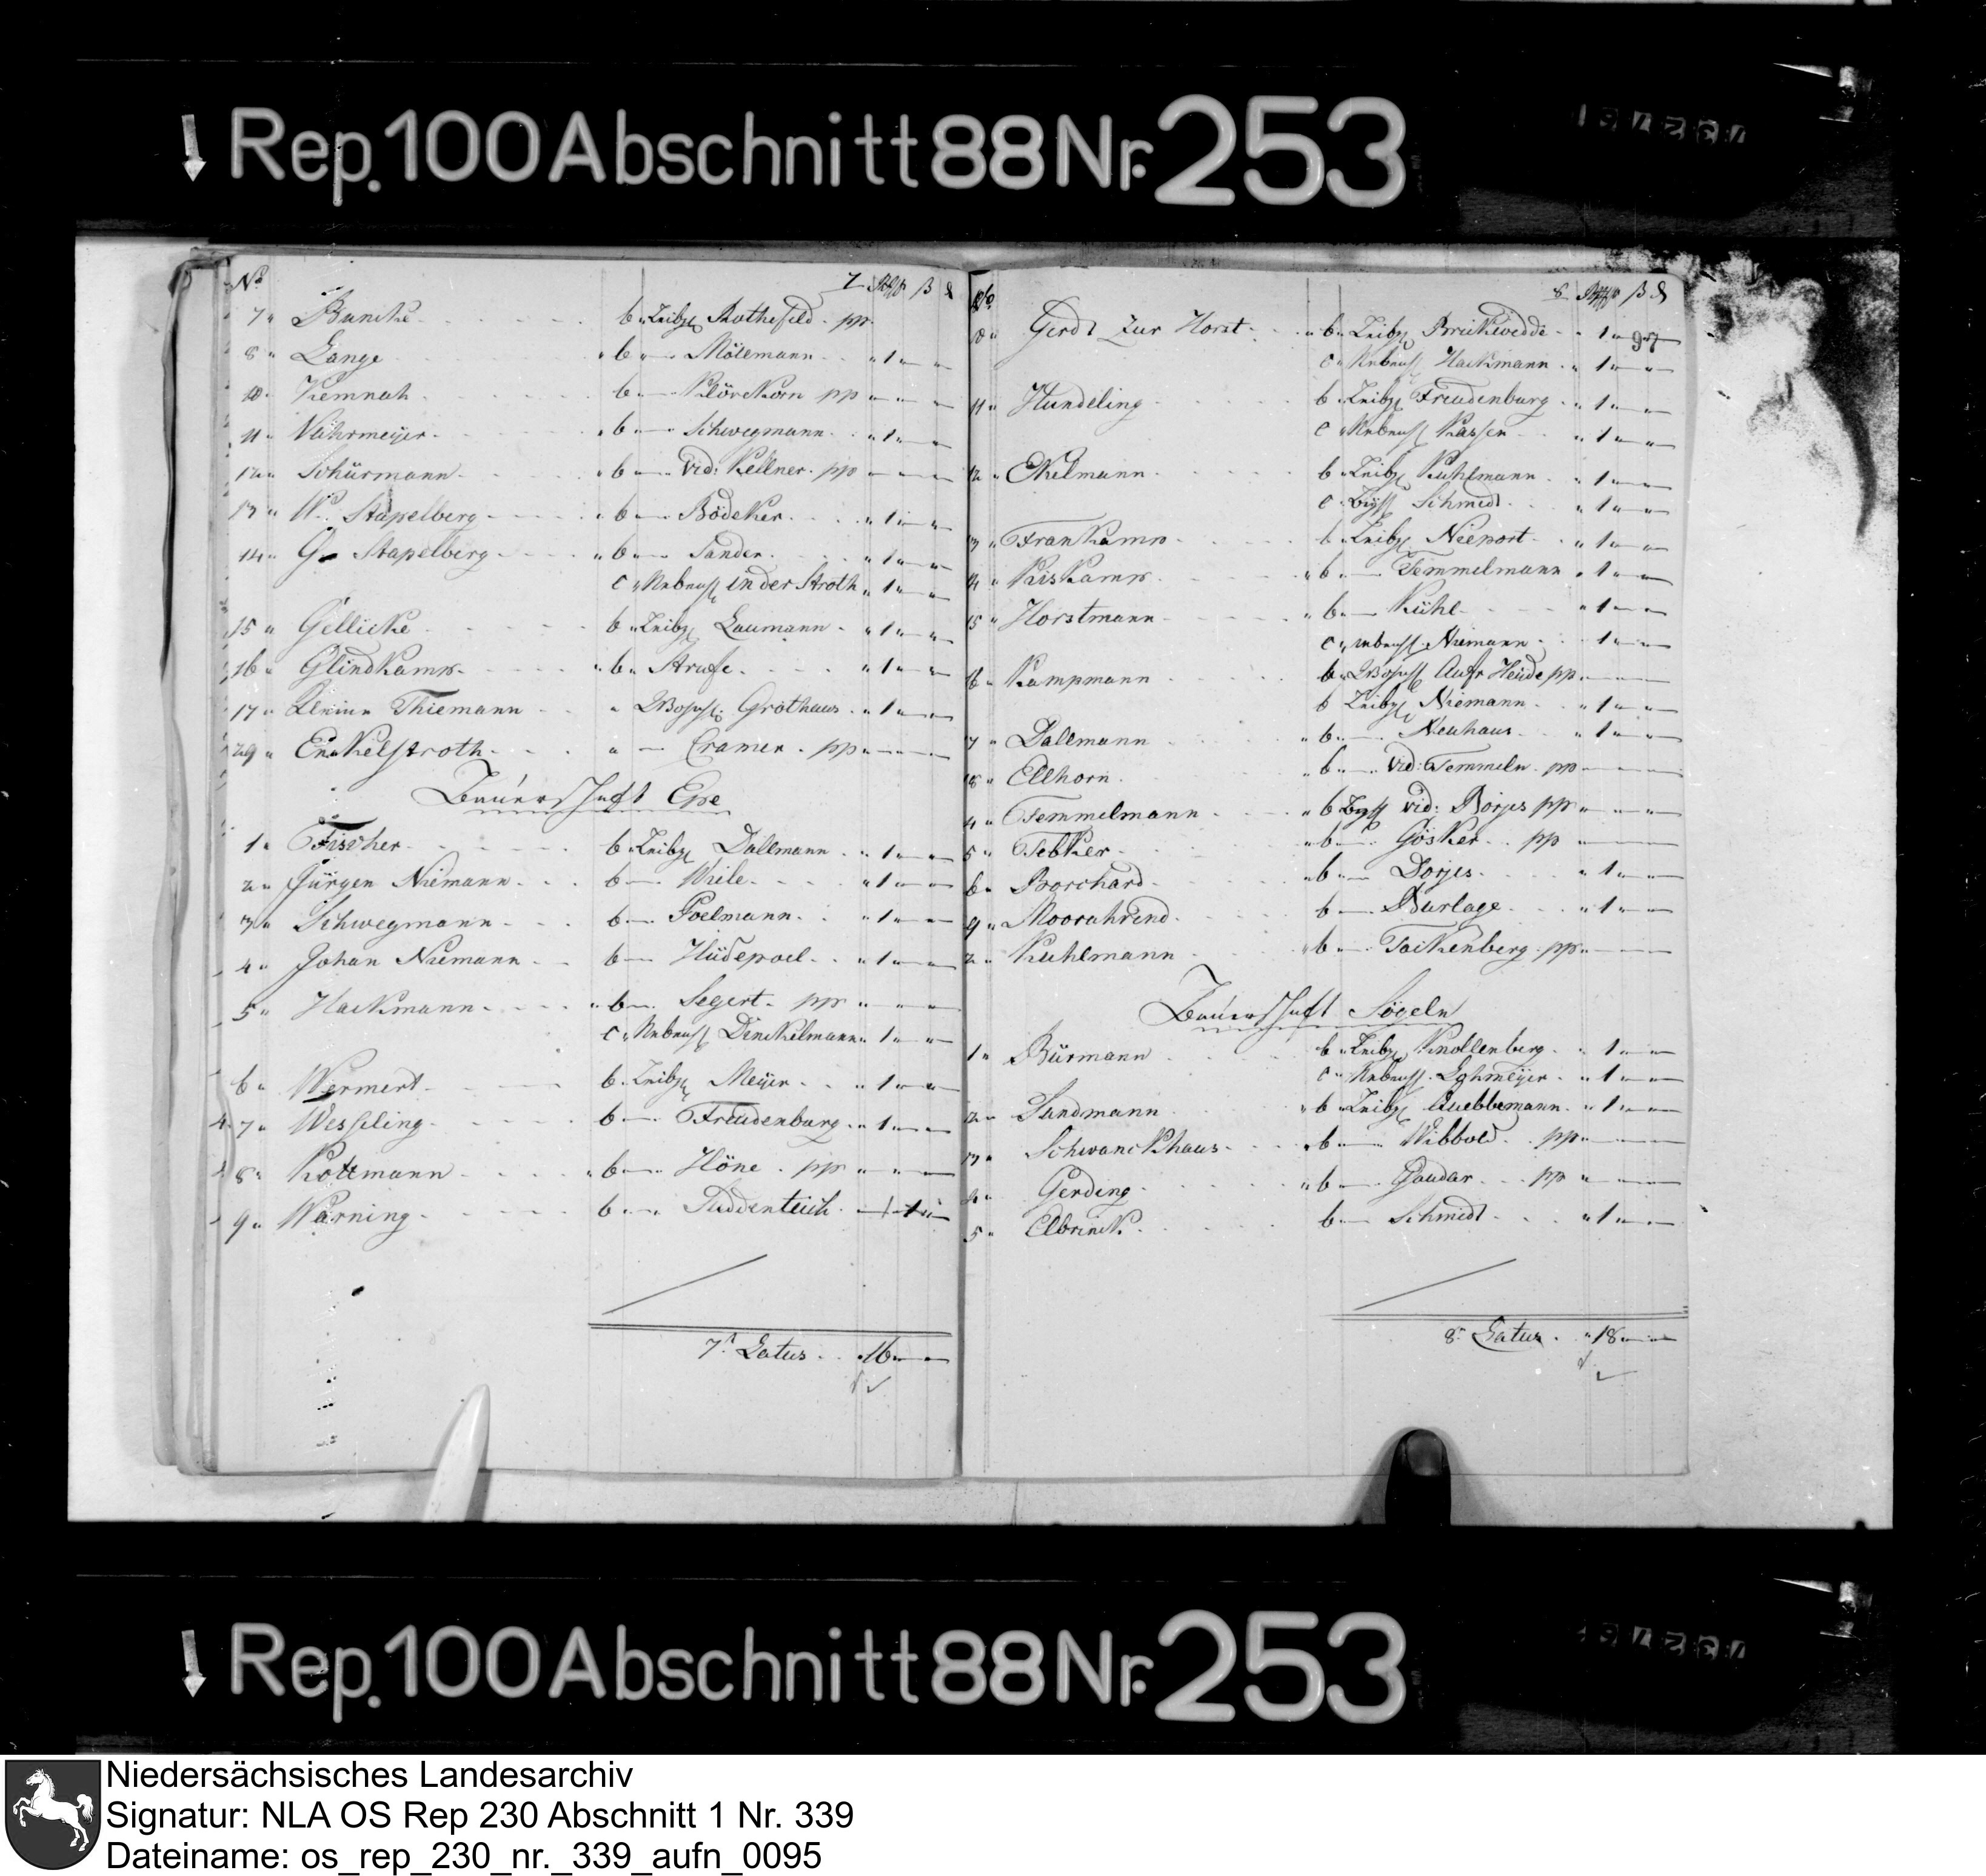 Rep. 100 Abschnitt 88 Nr. 253
No 7
7 Buncke b Leibz Rothefeld pp
8 Lange b — Mölemann 1
10 Kemnah b — Klörekorn pp
11 Nährmeyer b — Schwegmann 1
12 Schürmann b — vid: Kellner pp
13 W. Stapelberg b — Bödeker 1
14 G. Stapelberg b — Sander 1
c in der Stroth 1
15 Gellicke b Leibz Laumann 1
16 Glindkamp b Strufe 1
17 Thiemann Grothaus 1
29 Enckelstroth — Cramer pp
Bauerschaft Epe
1 Fischer b Leibz Dallmann 1
2 Jürgen Niemann b — Wiele 1
3 Schwegmann b — Poelmann 1
4 Johan Niemann b — Hüdepoel 1
5 Hackmann b — Segert pp
c Dinckelmann 1
6 Wermert b Leibz Meyer 1
7 Wessling b — Freudenburg 1
8 Kottmann b — Höne pp
9 Warning b — 1
7. Latus 16
No 8
97
8 Gerdt zur Horst b Leibz Brickwedde 1
c Hackmann 1
11 Hundeling b Leibz Freudenburg 1
c Kassen 1
12 Ekelmann b Leibz Kuhlmann 1
c Schmidt 1
13 Frankamp b Leibz Nieport 1
14 Kiskamp b — Temmelmann 1
15 Horstmann b — Kühl 1
c Niemann 1
16 Kampmann b Aufr Heide pp
b Leibz Niemann 1
17 Dallmann b — Neuhaus 1
18 Ellhorn b — vid: Temmeln pp
4 Temmelmann b vid: Börjes pp
5 Tebker b — Gösker pp
6 Borchard b — Dorjes 1
9 Moorahrend b — Burlage 1
2 Kuhlmann b — Tackenberg pp
Bauerschaft Sögeln
1 Bürmann b Leibz Knollenberg 1
c Lghmeyer 1
2 Sandmann b Leibz Quebbemann 1
3 Schwanckhaus b — Wibbold pp
4 Gerding b — pp
5 Elbrinck b — Schmidt 1
8. Latus 18
Rep. 100 Abschnitt 88 Nr. 253
Niedersächsisches Landesarchiv
Signatur: NLA OS Rep 230 Abschnitt 1 Nr. 339
Dateiname: os_rep_230_nr._339_aufn_0095